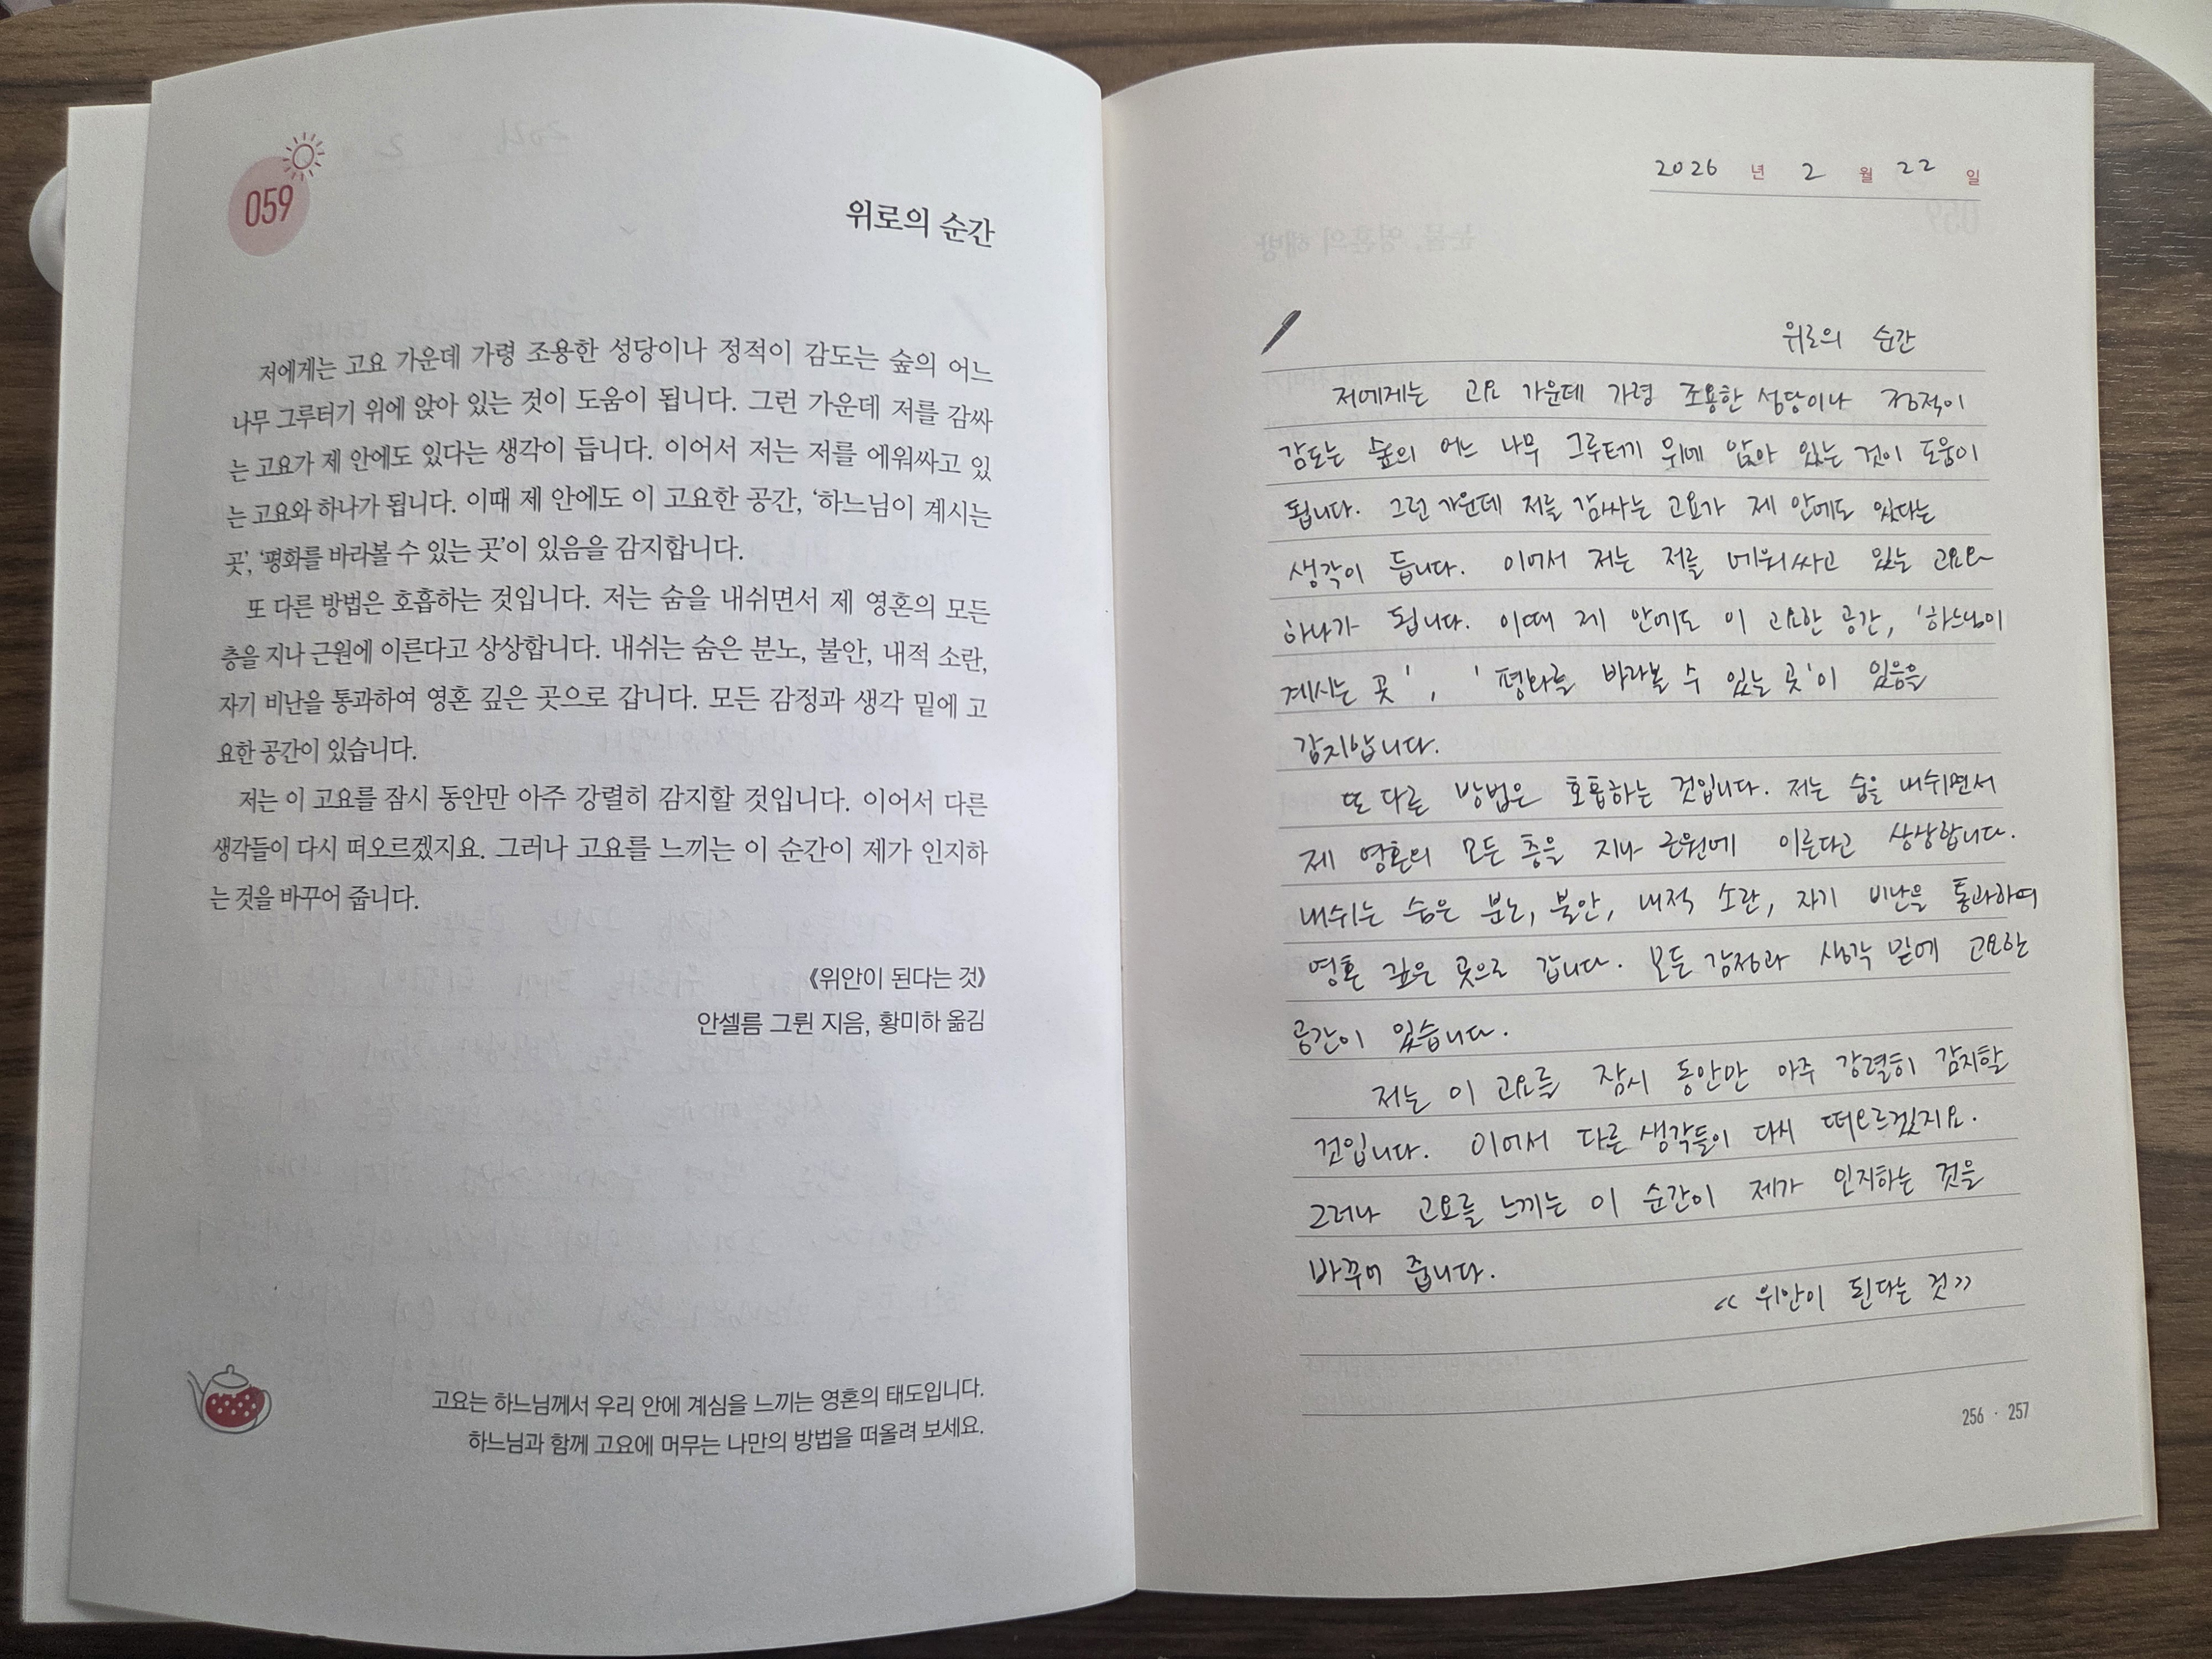 059
위로의 순간
저에게는 고요 가운데 가령 조용한 성당이나 정적이 감도는 숲의 어느
나무 그루터기 위에 앉아 있는 것이 도움이 됩니다. 그런 가운데 저를 감싸
는 고요가 제 안에도 있다는 생각이 듭니다. 이어서 저는 저를 에워싸고 있
는 고요와 하나가 됩니다. 이때 제 안에도 이 고요한 공간, ‘하느님이 계시는
곳’, ‘평화를 바라볼 수 있는 곳’이 있음을 감지합니다.
또 다른 방법은 호흡하는 것입니다. 저는 숨을 내쉬면서 제 영혼의 모든
층을 지나 근원에 이른다고 상상합니다. 내쉬는 숨은 분노, 불안, 내적 소란,
자기 비난을 통과하여 영혼 깊은 곳으로 갑니다. 모든 감정과 생각 밑에 고
요한 공간이 있습니다.
저는 이 고요를 잠시 동안만 아주 강렬히 감지할 것입니다. 이어서 다른
생각들이 다시 떠오르겠지요. 그러나 고요를 느끼는 이 순간이 제가 인지하
는 것을 바꾸어 줍니다.
《위안이 된다는 것》
안셀름 그륀 지음, 황미하 옮김
고요는 하느님께서 우리 안에 계심을 느끼는 영혼의 태도입니다.
하느님과 함께 고요에 머무는 나만의 방법을 떠올려 보세요.
2026 년 2 월 22 일
위로의 순간
저에게는 고요 가운데 가령 조용한 성당이나 정적이
감도는 숲의 어느 나무 그루터기 위에 앉아 있는 것이 도움이
됩니다. 그런 가운데 저를 감싸는 고요가 제 안에도 있다는
생각이 듭니다. 이어서 저는 저를 에워싸고 있는 고요와
하나가 됩니다. 이때 제 안에도 이 고요한 공간, '하느님이
계시는 곳', '평화를 바라볼 수 있는 곳'이 있음을
감지합니다.
또 다른 방법은 호흡하는 것입니다. 저는 숨을 내쉬면서
제 영혼의 모든 층을 지나 근원에 이른다고 상상합니다.
내쉬는 숨은 분노, 불안, 내적 소란, 자기 비난을 통과하여
영혼 깊은 곳으로 갑니다. 모든 감정과 생각 밑에 고요한
공간이 있습니다.
저는 이 고요를 잠시 동안만 아주 강렬히 감지할
것입니다. 이어서 다른 생각들이 다시 떠오르겠지요.
그러나 고요를 느끼는 이 순간이 제가 인지하는 것을
바꾸어 줍니다.
《 위안이 된다는 것》
256 · 257